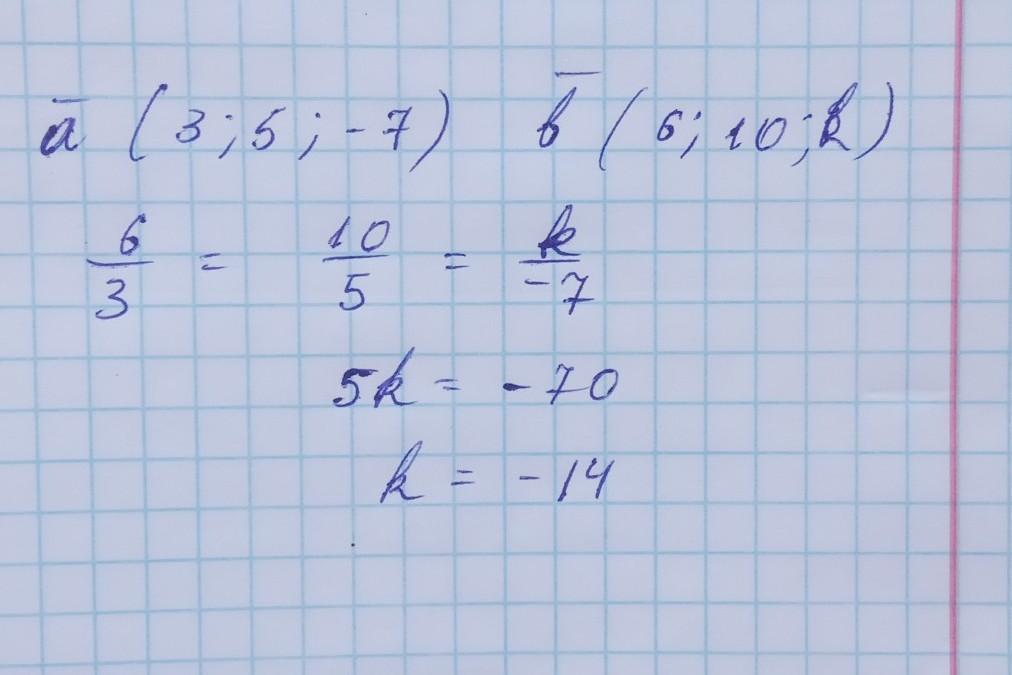 a̅ (3;5;-7) b̅ (6;10;k)
6/3 = 10/5 = k/-7
5k = -70
k = -14